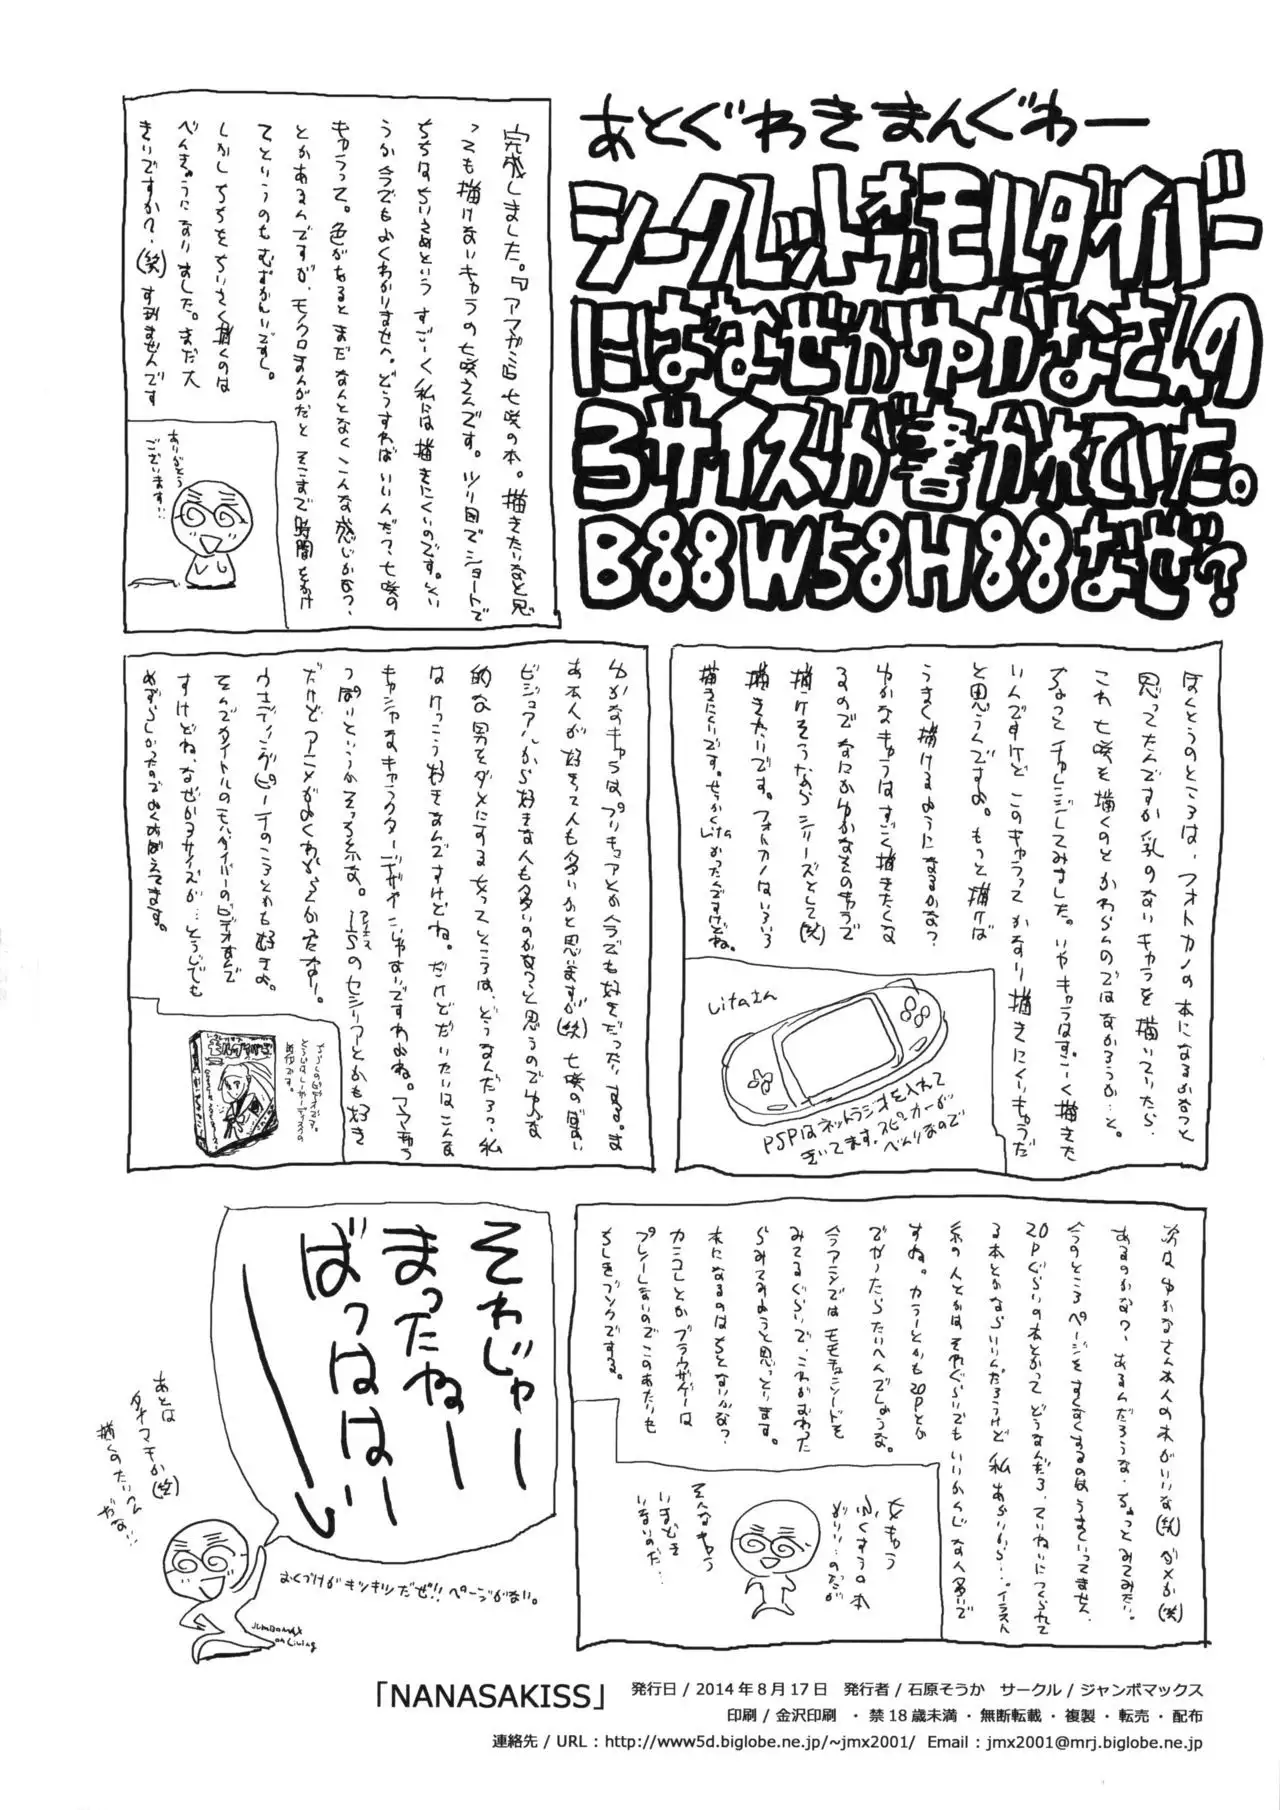 あとぐわき まんぐわー
シークレット
モルダイバー
にはなぜかゆかなさんの
3サイズが書かれていた。
B88W58H88なぜ?
完成しました。『アマガミ』七咲の本。描きたいなと思
っても描けないキャラの七咲さんです。ツリ目でショートで
ちちはちいさめという すごーく私には描きにくいのです。
うか今でもよくわかりませへ。どうすればいいんだ?七咲の
キャラって。色があるとまだなんとなくこんな感じかな?
とかあるんですが、モノクロまんがだと そこまで時間をかけ
てというのもむずかしいですし。
しかし ちちをちいさく描くのは
べんきょうになりました。まだ大
きいですか?(笑)すみませんです
ありがとう
ございます…
ほんとうのところは、フォトカノの本になるかなっと
思ってたんですが 乳のないキャラを描いていたら、
これ 七咲を描くのとかわらんのではなかろうか…と。
ちょっとチャレンジしてみました。いやキャラはすごーく描きた
いんですけど このキャラって かなり描きにくいキャラだ
と思うんですよ。もっと描けば
うまく描けるようになるかな?
ゆかなキャラはすごく描きたくな
るので なにかゆかなそのもので
描けそうなら シリーズとして(笑)
描きたいです。フォトカノはいろいろ
描きにくいです。せっかくLitaかったんですけどね。
Litaさん
PSPはネットラジオを入れて
きいてます。スピーカーが
べんりなので
ゆかなキャラは、プリキュアとか今でも好きだったりする。ま
あ本人が好きって人も多いかと思いますが(笑)七咲のばあい
ビジュアルから好きな人も多いのかなっと思うので ゆかな
的な男をダメにする女ってところは、どうなんだろっ、私
はけっこう好きなんですけどね。だけどだいたいはこんな
っぽいというかそっち系な。ISのセシリアとかも好き
だけど アニメがよくわからんかったなー。
ウエディングピーチのころとかも好きよ。
すけどね、なぜか3サイズが…とうじでも
めずらしかったのでよくおぼえてます。
次は ゆかなさん本人の本がいいな(笑)
あるのかな?、あるんだろうな、ちょっとみてみたい。
今のところページをすくなくするのはうまくいってません、
20Pぐらいの本とかって どうなんだろ、ていねいにつくられて
る本とかならいいんだろうけど 私 あらいから…、イラスト
系の人とかは それぐらいでもいいかんじな人多いで
すね。カラーとかも20Pとか
でかったらたいへんでしょうな。
みてるぐらいで、これがおわった
らみてみようと思っています。
本になるのはちとないかな?、
カンコレとかブラウザゲーは
プレーしないのでこのあたりも
ちしきブソクでする。
女キャラ
ふくすうの本
そんなキャラ
いまどき
いないのだ…
それじゃー
まったねー
ばっははーい
あとは
タイマキか(笑)
描くのたいへん
だな…
おくづけがギリギリだぜ!!ページがない。
JUMBOMAX
on Living
「NANASAKISS」 発行日 / 2014 年 8 月 17 日 発行者 / 石原そうか サークル / ジャンボマックス
印刷 / 金沢印刷 ・ 禁 18 歳未満 ・ 無断転載 ・ 複製 ・ 転売 ・ 配布
連絡先 / URL : http://www5d.biglobe.ne.jp/~jmx2001/ Email : jmx2001@mrj.biglobe.ne.jp